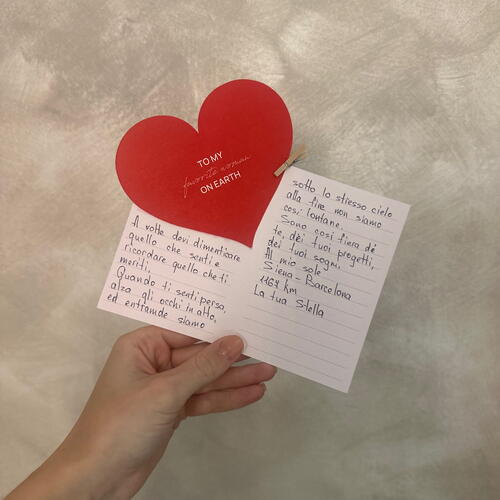 TO MY
favorite woman
ON EARTH
A volte devi dimenticare
quello che senti e
ricordare quello che ti
meriti.
Quando ti senti persa,
alza gli occhi in alto,
ed entrambe siamo
sotto lo stesso cielo
alla fine non siamo
così lontane.
Sono così fiera di
te, dei tuoi progetti,
dei tuoi sogni.
Al mio sole
Siena - Barcelona
1167 km
La tua Stella